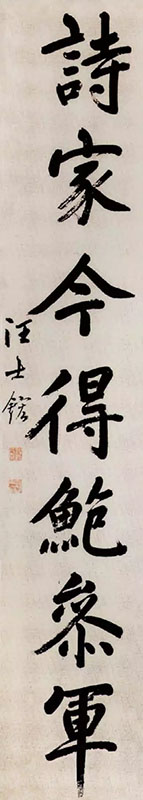 詩家今得鮑參軍
汪士鋐